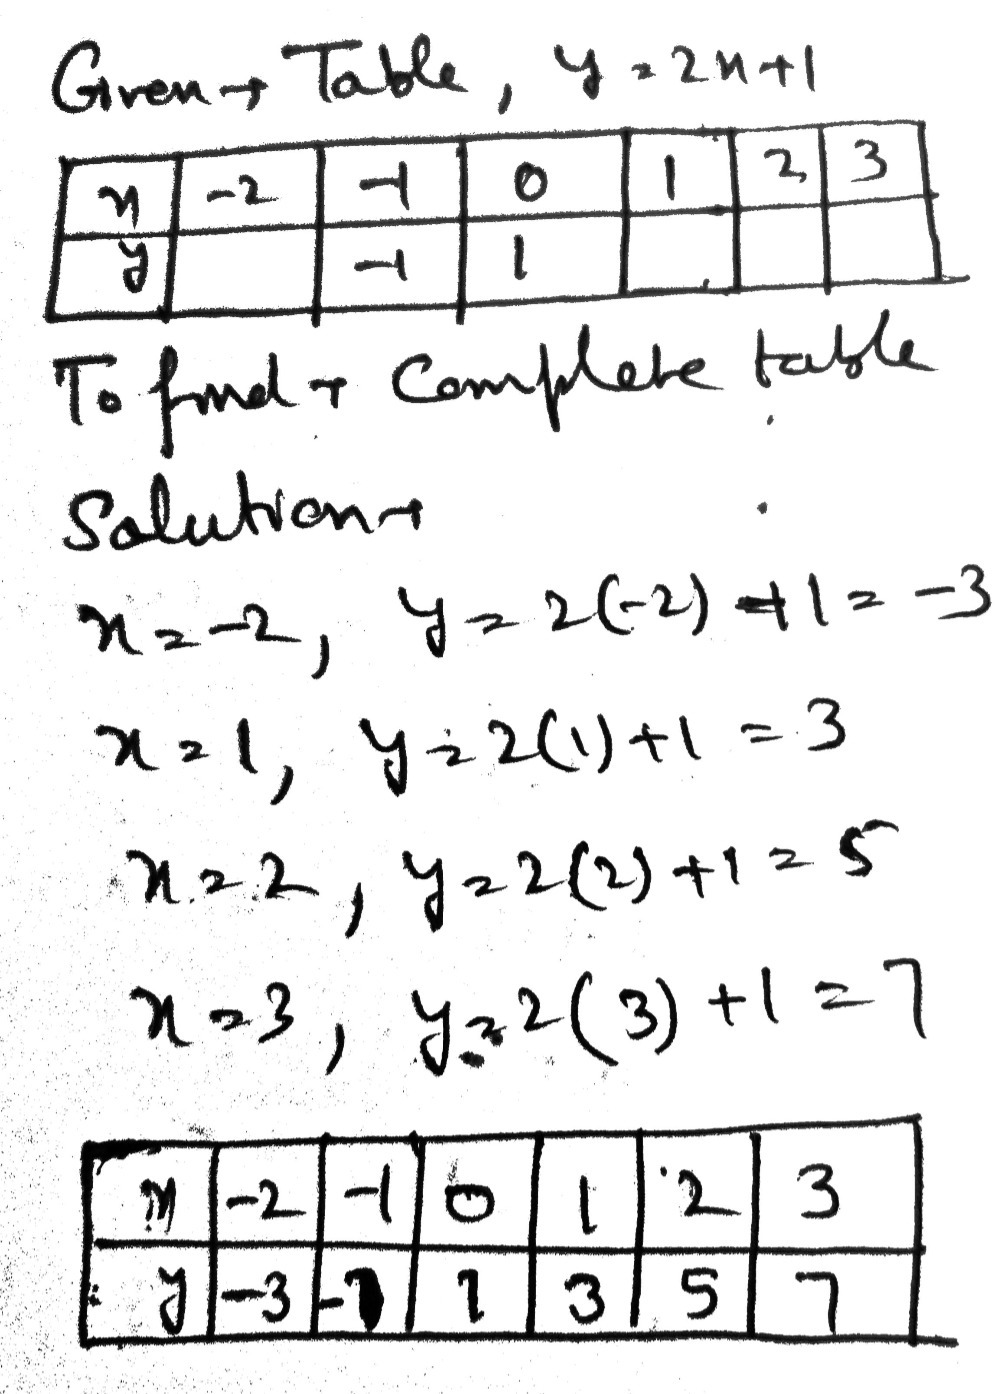 Given → Table, y = 2x+1
x -2 -1 0 1 2 3
y -1 1
To find → Complete table
Solution →
x = -2, y = 2(-2) +1 = -3
x = 1, y = 2(1) +1 = 3
x = 2, y = 2(2) +1 = 5
x = 3, y = 2(3) +1 = 7
x -2 -1 0 1 2 3
y -3 -1 1 3 5 7